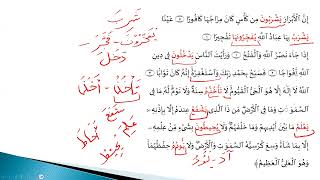 شَرِبَ
إِنَّ الْأَبْرَارَ يَشْرَبُونَ مِن كَأْسٍ كَانَ مِزَاجُهَا كَافُورًا ۝ عَيْنًا
يَشْرَبُ بِهَا عِبَادُ اللَّهِ يُفَجِّرُونَهَا تَفْجِيرًا
يُفَجِّرُونَ - فَجَّرَ
دَخَلَ
إِذَا جَاءَ نَصْرُ اللَّهِ وَالْفَتْحُ ۝ وَرَأَيْتَ النَّاسَ يَدْخُلُونَ فِي دِينِ
اللَّهِ أَفْوَاجًا ۝ فَسَبِّحْ بِحَمْدِ رَبِّكَ وَاسْتَغْفِرْهُ إِنَّهُ كَانَ تَوَّابًا
اللَّهُ لَا إِلَٰهَ إِلَّا هُوَ الْحَيُّ الْقَيُّومُ لَا تَأْخُذُهُ سِنَةٌ وَلَا نَوْمٌ لَّهُ مَا فِي
السَّمَاوَاتِ وَمَا فِي الْأَرْضِ مَن ذَا الَّذِي يَشْفَعُ عِندَهُ إِلَّا بِإِذْنِهِ
يَعْلَمُ مَا بَيْنَ أَيْدِيهِمْ وَمَا خَلْفَهُمْ وَلَا يُحِيطُونَ بِشَيْءٍ مِّنْ عِلْمِهِ
إِلَّا بِمَا شَاءَ وَسِعَ كُرْسِيُّهُ السَّمَاوَاتِ وَالْأَرْضَ وَلَا يَئُودُهُ حِفْظُهُمَا
وَهُوَ الْعَلِيُّ الْعَظِيمُ